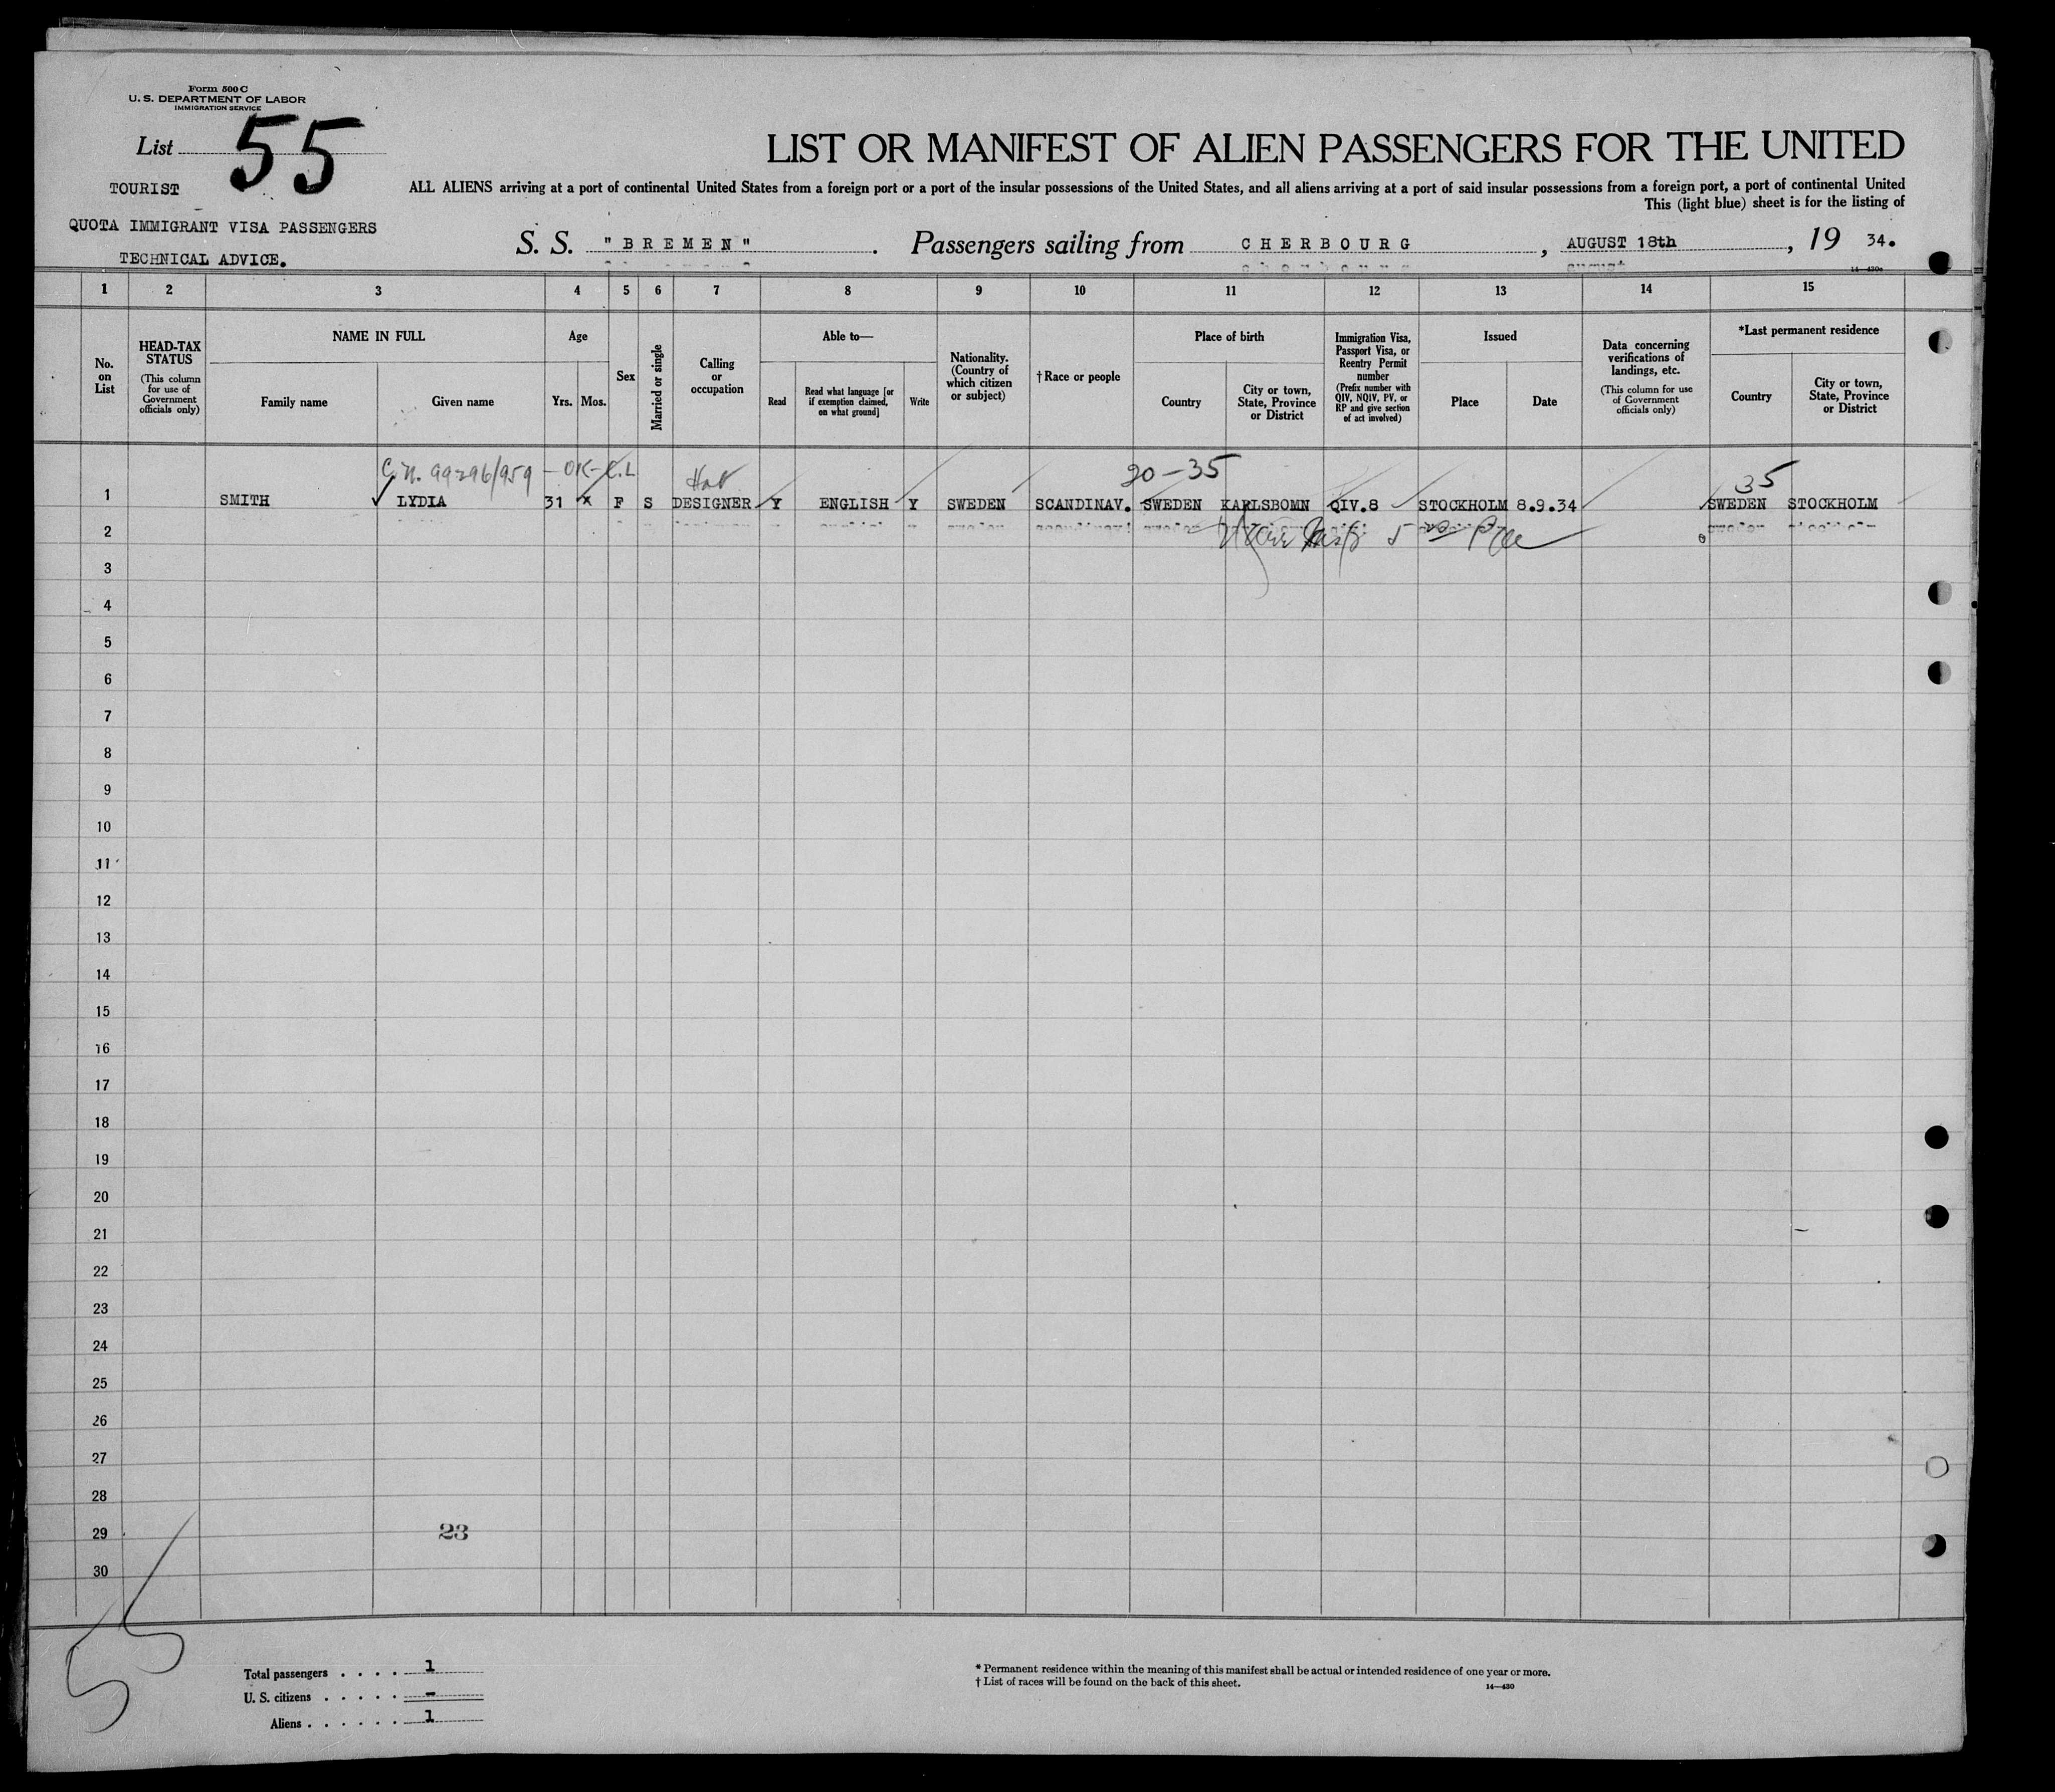 Form 500 C
U. S. DEPARTMENT OF LABOR
IMMIGRATION SERVICE
List 55
TOURIST
QUOTA IMMIGRANT VISA PASSENGERS
TECHNICAL ADVICE.
LIST OR MANIFEST OF ALIEN PASSENGERS FOR THE UNITED
ALL ALIENS arriving at a port of continental United States from a foreign port or a port of the insular possessions of the United States, and all aliens arriving at a port of said insular possessions from a foreign port, a port of continental United
This (light blue) sheet is for the listing of
S. S. "BREMEN". Passengers sailing from CHERBOURG, AUGUST 18th, 19 34.
14—430c
1 2 3 4 5 6 7 8 9 10 11 12 13 14 15
No. on List
HEAD-TAX STATUS
(This column for use of Government officials only)
NAME IN FULL
Family name
Given name
Age
Yrs.
Mos.
Sex
Married or single
Calling or occupation
Able to—
Read
Read what language [or if exemption claimed, on what ground]
Write
Nationality. (Country of which citizen or subject)
†Race or people
Place of birth
Country
City or town, State, Province or District
Immigration Visa, Passport Visa, or Reentry Permit number
(Prefix number with QIV, NQIV, PV, or RP and give section of act involved)
Issued
Place
Date
Data concerning verifications of landings, etc.
(This column for use of Government officials only)
*Last permanent residence
Country
City or town, State, Province or District
C.N. 99296/959 – OK – C.L
Hat
20–35
35
1 SMITH LYDIA 31 x F S DESIGNER Y ENGLISH Y SWEDEN SCANDINAV. SWEDEN KARLSBOMN QIV.8 STOCKHOLM 8.9.34 SWEDEN STOCKHOLM
2
3
4
5
6
7
8
9
10
11
12
13
14
15
16
17
18
19
20
21
22
23
24
25
26
27
28
29 23
30
55
Total passengers . . . . 1
U. S. citizens . . . . . –
Aliens . . . . . . 1
* Permanent residence within the meaning of this manifest shall be actual or intended residence of one year or more.
† List of races will be found on the back of this sheet.
14—430